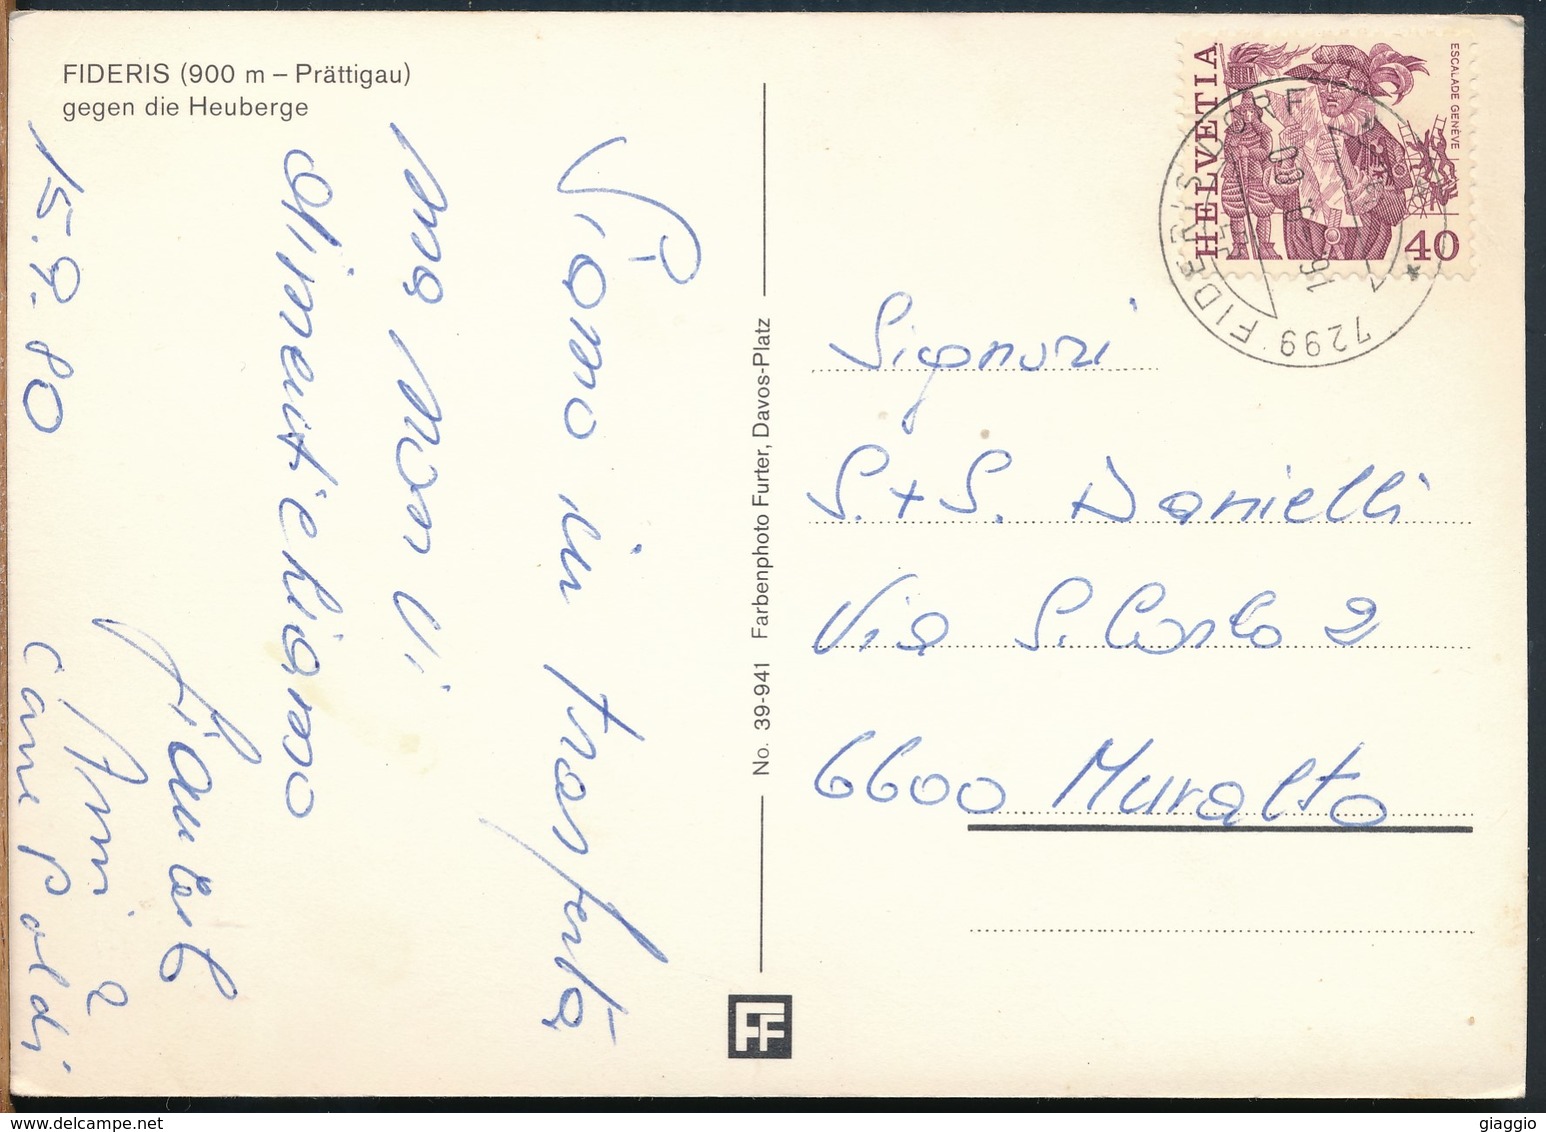 FIDERIS (900 m – Prättigau)
gegen die Heuberge
15.9.80
Siamo in trasferta
ma non vi
dimentichiamo
Anni e
Cane Poldi
No. 39-941 Farbenphoto Furter, Davos-Platz
FF
HELVETIA
ESCALADE GENÈVE
40
7299 FIDERIS DORF
Signori
S. + S. Danielli
Via S. Carlo 2
6600 Muralto
giaggio